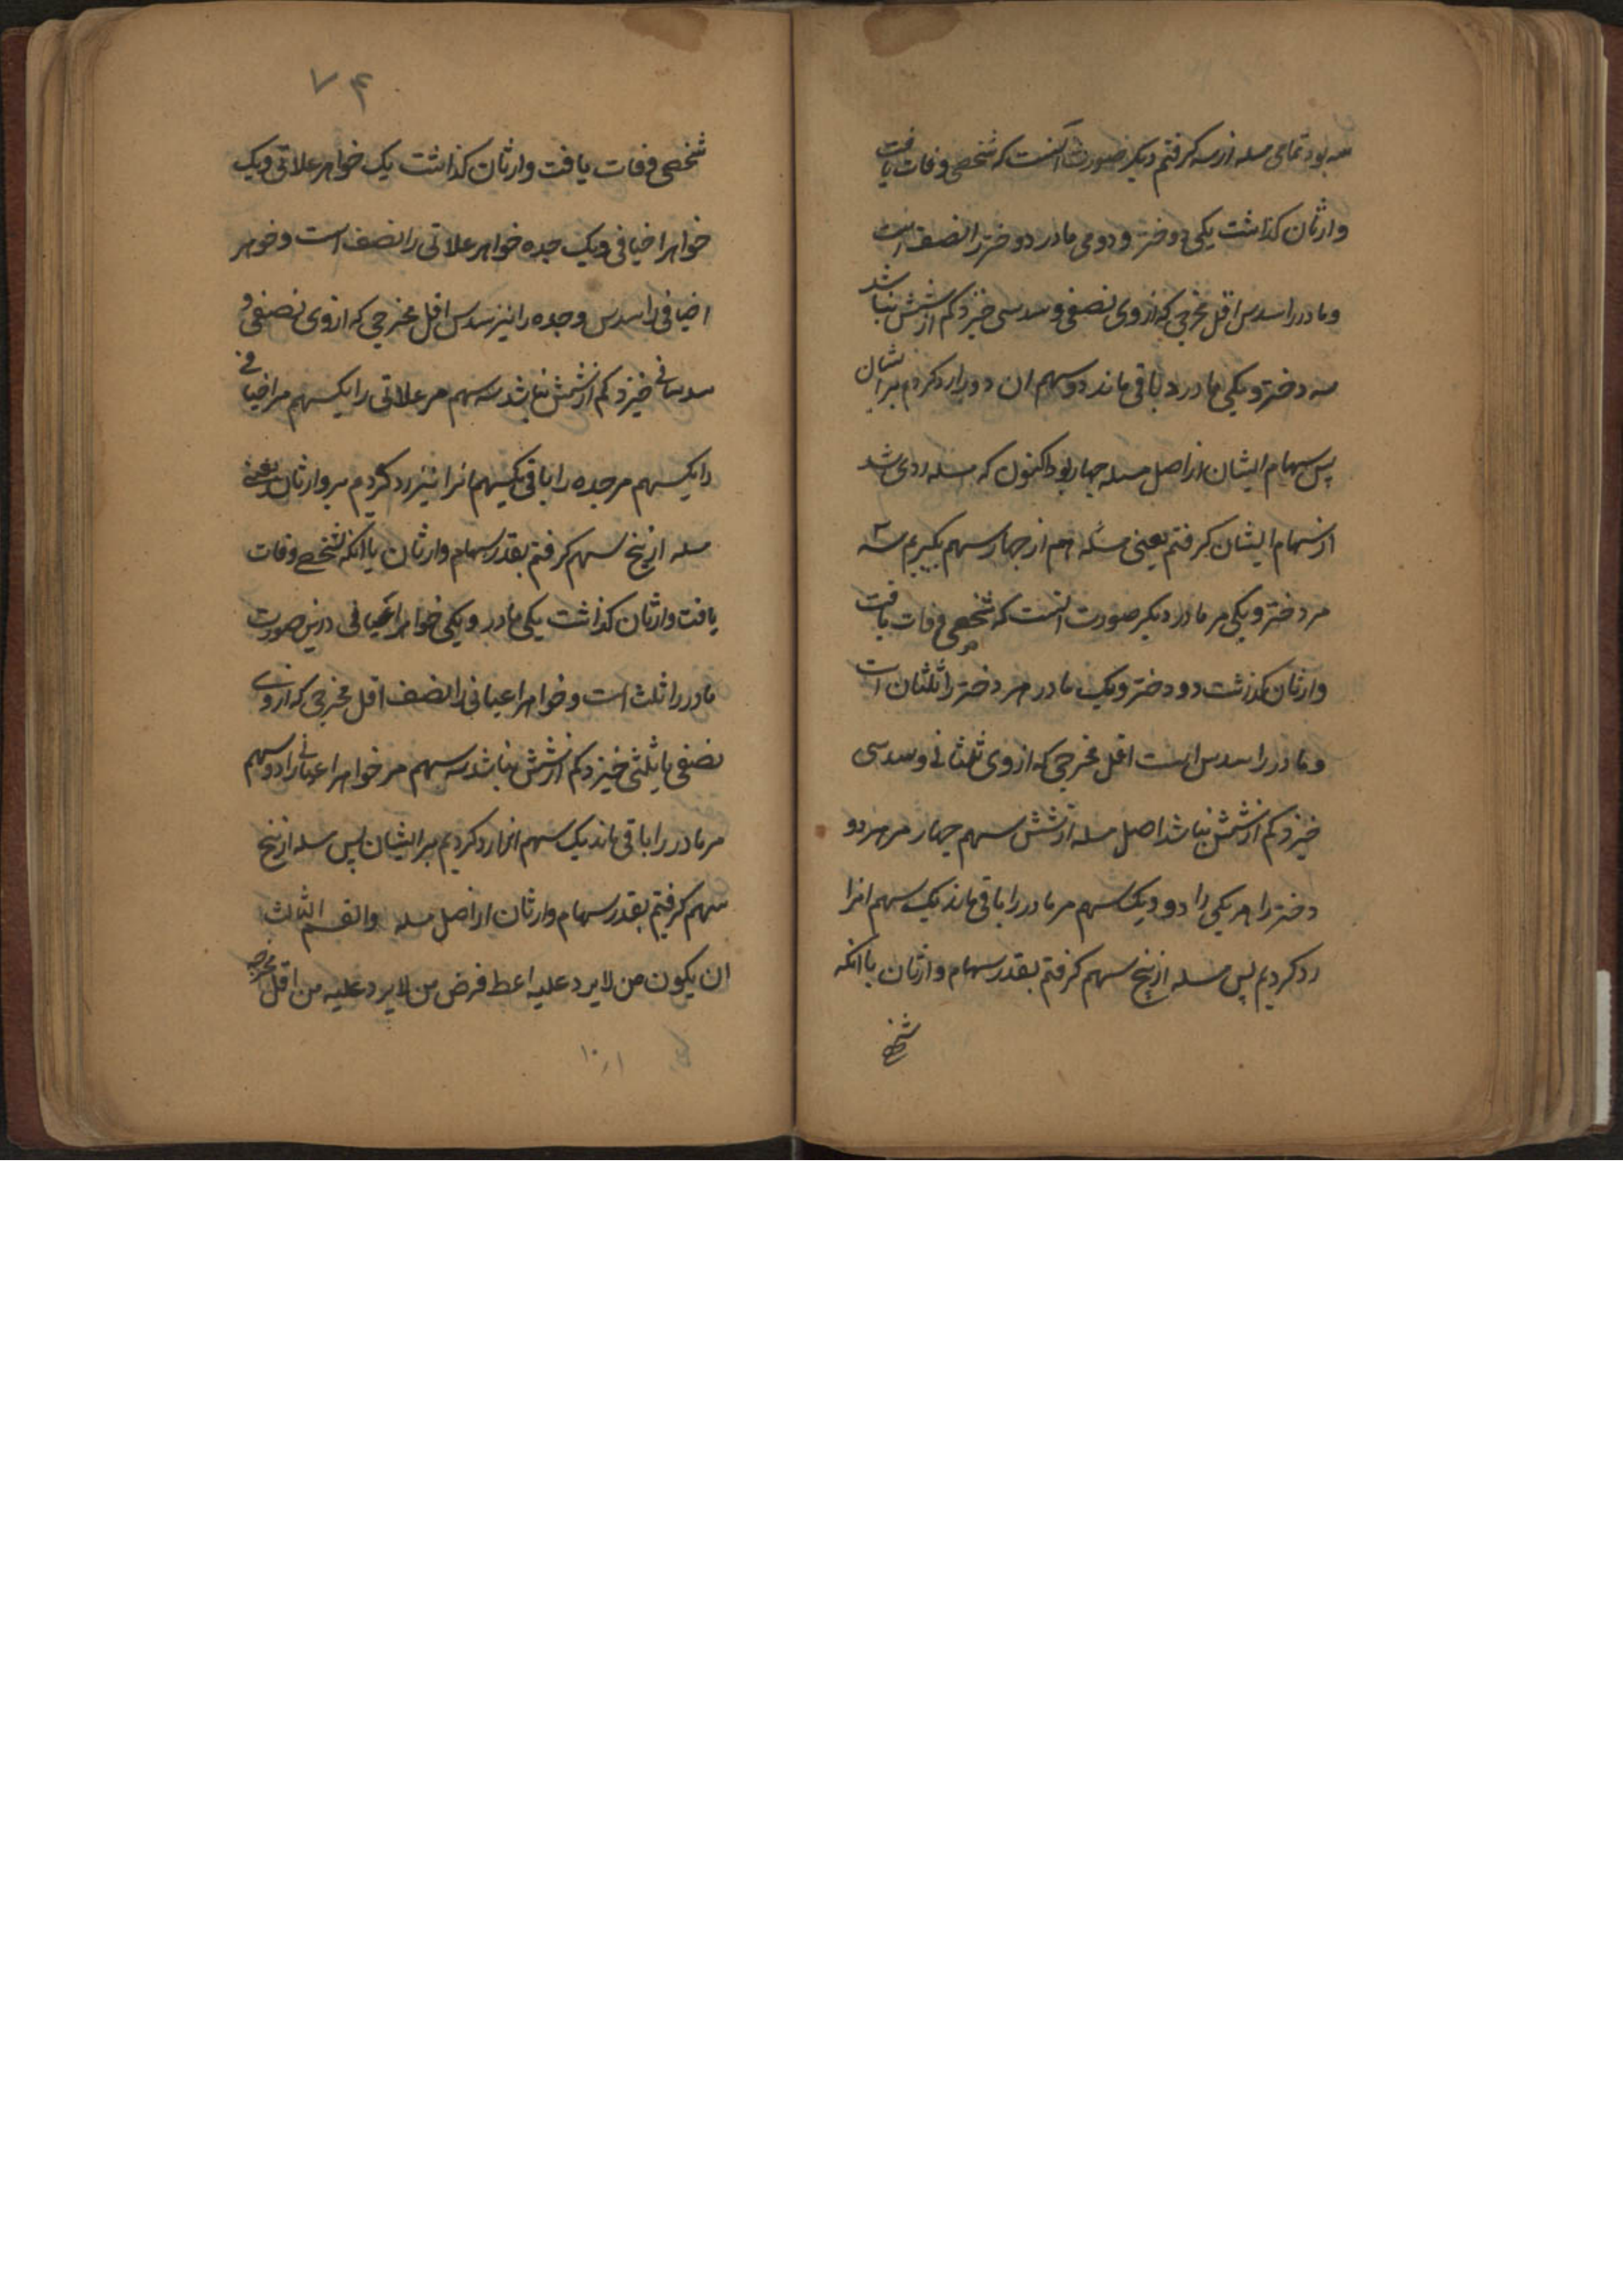 سه بود تمامی مسله از سه کرفتم دیکر صورت آنست که شخصی وفات یافت
وارثان کذاشت یکی دوختر و دومی مادر دوختر را نصف است
و مادر را سدس اقل مخرجی که ازوی نصفی و سدسی خیزد کم از شش نباشد
سه دختر و یکی مادر را باقی ماند دو سهم ان دو را رد کردم بر ایشان
پس سهام ایشان از اصل مسله چهار بود اکنون که مسله ردی شد
از سهام ایشان کرفتم یعنی مسئله هم از چهار سهم بکیریم سه
مر دختر و یکی مر مادر دیکر صورت انست که شخصی وفات یافت
وارثان کذاشت دو دختر و یک مادر مر دختر را ثلثان است
و مادر را سدس است اقل مخرجی که ازوی ثلثانی و سدسی
خیزد کم از شش نباشد اصل مسله از شش سهم چهار مر هر دو
دختر را هر یکی را دو و یک سهم مر مادر را باقی ماند یک سهم انرا
رد کردیم پس مسله از پنج سهم کرفتم بقدر سهام وارثان یا انکه
شخصی
۷۴
شخصی وفات یافت وارثان کذاشت یک خواهر علاتی و یک
خواهر اخیافی و یک جده خواهر علاتی را نصف است و خوهر
اخیافی را سدس و جده را نیز سدس اقل مخرجی که ازوی نصفی و
سدسانی خیزد کم از شش نباشد سه سهم مر علاتی را یکسهم مر اخیافی
را یکسهم مر جده را باقی یکسهم مانرا نیز رد کردیم بر وارثان یعنی
مسله از پنج سهم کرفتم بقدر سهام وارثان یا انکه شخصے وفات
یافت وارثان کذاشت یکی مادر و یکی خواهر اعیانی درین صورت
مادر را ثلث است و خواهر اعیانی را نصف اقل مخرجی که ازوی
نصفی یا ثلثی خیزد کم از شش نباشد سه سهم مر خواهر اعیانی را دو سهم
مر مادر را باقی ماند یک سهم انرا رد کردیم بر ایشان پس مسله از پنج
سهم کرفتیم بقدر سهام وارثان از اصل مسله والقسم الثالث
ان یکون من لا یرد علیه اعط فرض من لا یرد علیه من اقل مخرجه